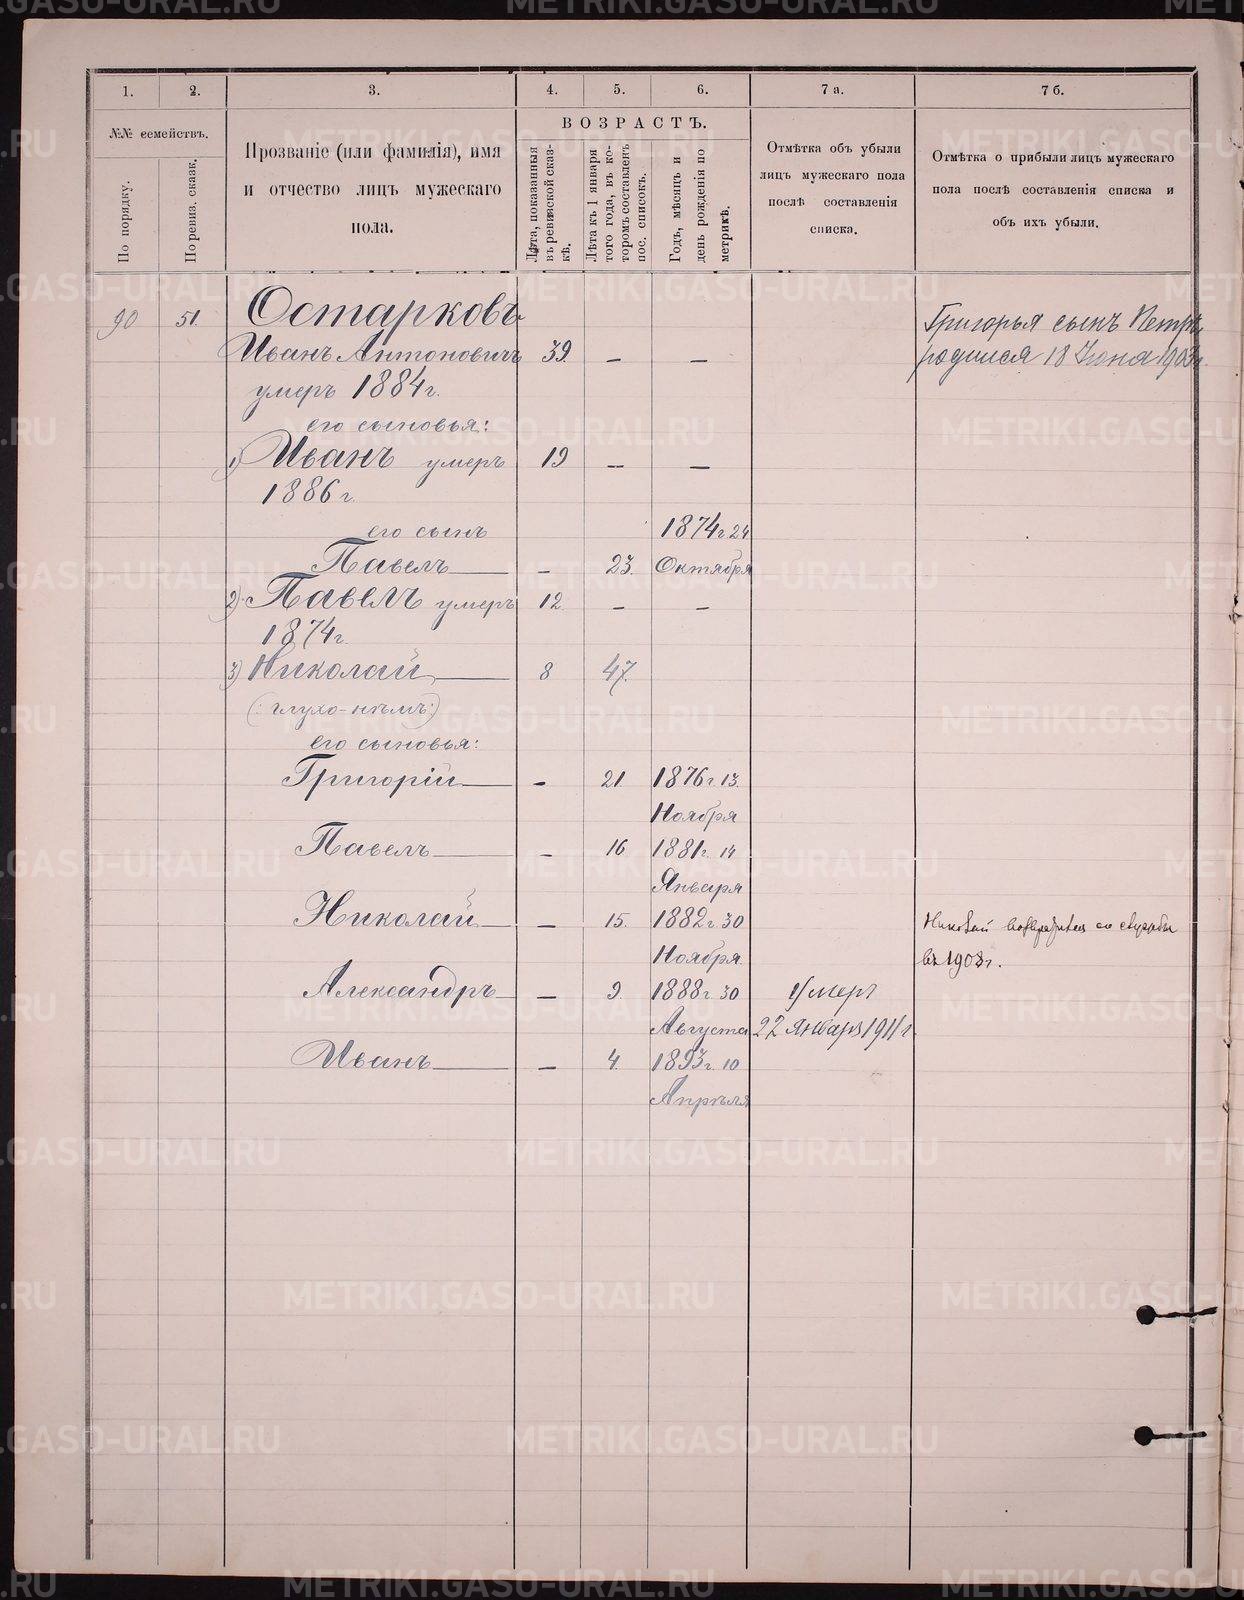 1.
2.
3.
4.
5.
6.
7 а.
7 б.
№№ семействъ.
По порядку.
По ревиз. сказк.
Прозваніе (или фамилія), имя
и отчество лицъ мужескаго
пола.
ВОЗРАСТЪ.
Лѣта, показанныя
въ ревизской сказ-
кѣ.
Лѣта къ 1 января
того года, въ ко-
торомъ составленъ
пос. списокъ.
Годъ, мѣсяцъ и
день рожденія по
метрикѣ.
Отмѣтка объ убыли
лицъ мужескаго пола
послѣ составленія
списка.
Отмѣтка о прибыли лицъ мужескаго
пола послѣ составленія списка и
объ ихъ убыли.
90 51. Остарковъ Григорья сынъ Петръ
Иванъ Антоновичъ 39. — — родился 18 Іюня 1903 г.
умеръ 1884 г.
его сыновья:
1) Иванъ умеръ 19 — —
1886 г.
его сынъ 1874 г. 24
Павелъ — — 23. Октября
2) Павелъ умеръ 12. — —
1874 г.
3) Николай — 8 47.
(: глухо-нѣмъ:)
его сыновья:
Григорій — — 21 1876 г. 13.
Ноября
Павелъ — — 16 1881 г. 14
Января
Николай — — 15. 1882 г. 30 Николай возвратился со службы
Ноября въ 1908 г.
Александръ — — 9. 1888 г. 30 Умеръ
Августа 22 Января 1911 г.
Иванъ — — 4. 1893 г. 10
Апрѣля
METRIKI.GASO-URAL.RU